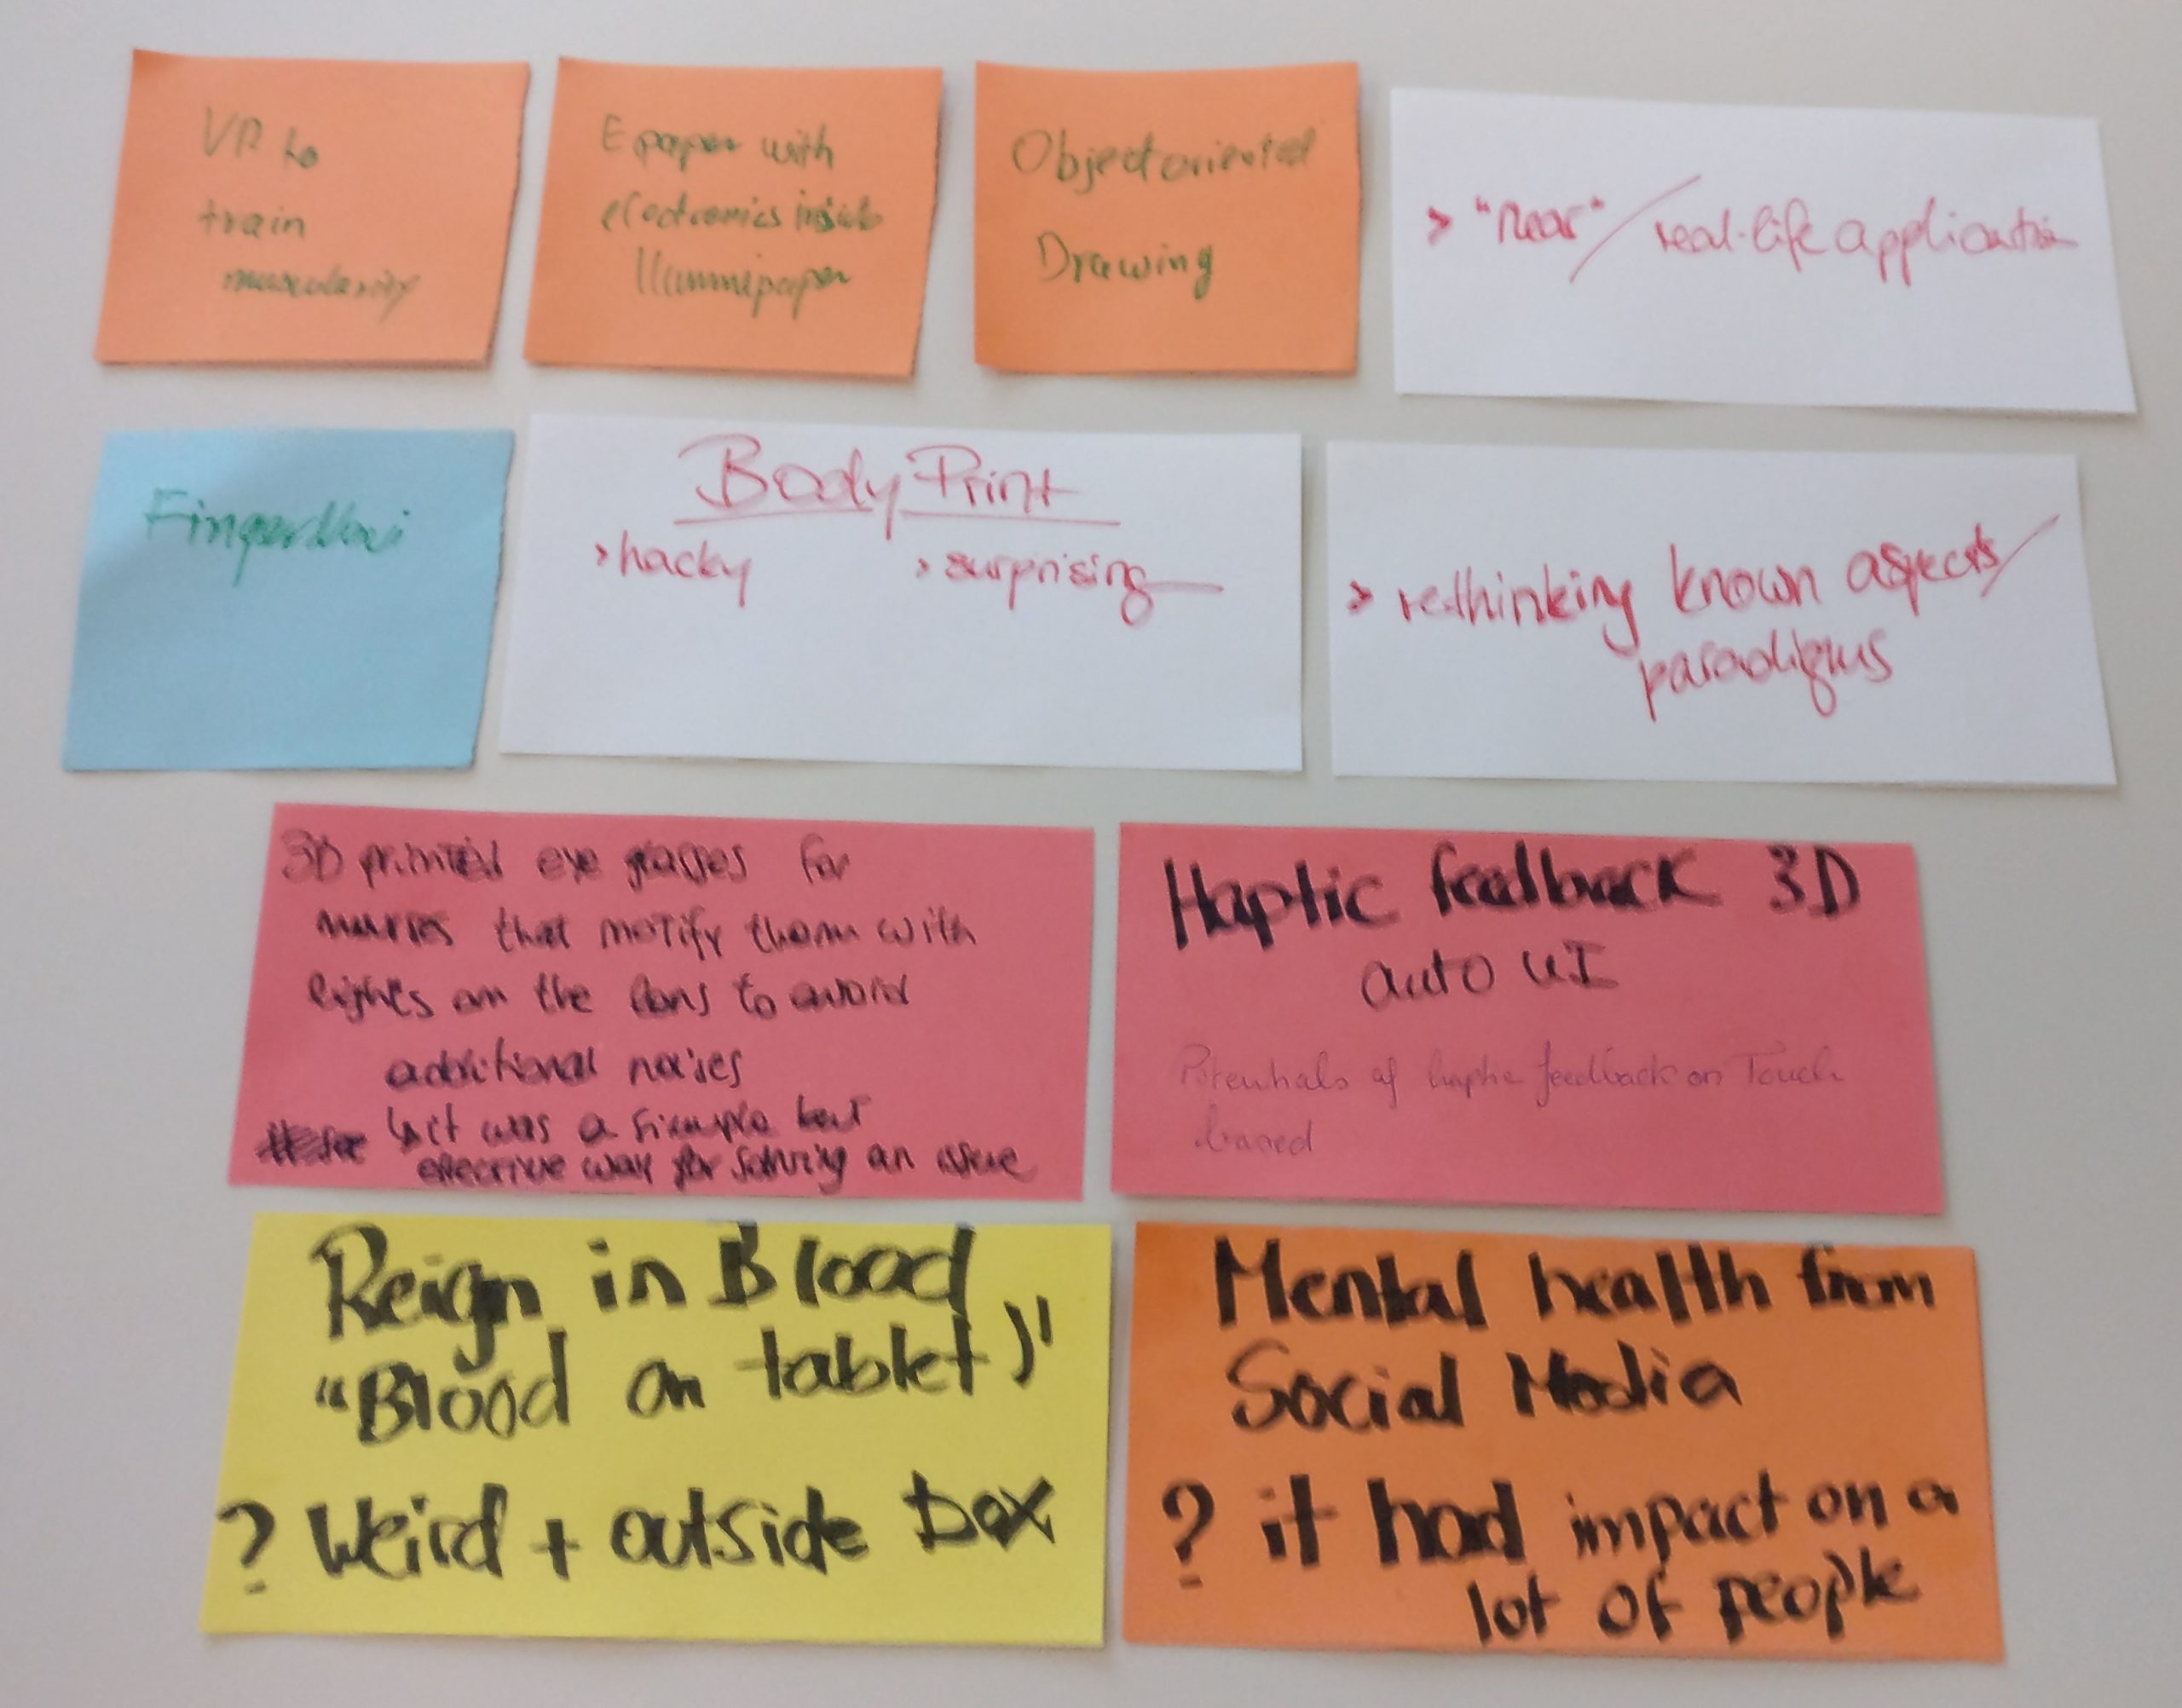 VR to
train
muscularity
Epaper with
electronics inside
Illumipaper
Objectoriented
Drawing
> "near" / real-life application
Body Print
> hacky > surprising
> rethinking known aspects/
paradigms
3D printed eye glasses for
nurses that notify them with
lights on the lens to avoid
additional noises
↳ it was a simple but
effective way for solving an issue
Haptic feedback 3D
auto UI
Potentials of haptic feedback on Touch
based
Reign in Blood
"Blood on tablet)"
? Weird + outside box
Mental health from
Social Media
? it had impact on a
lot of people